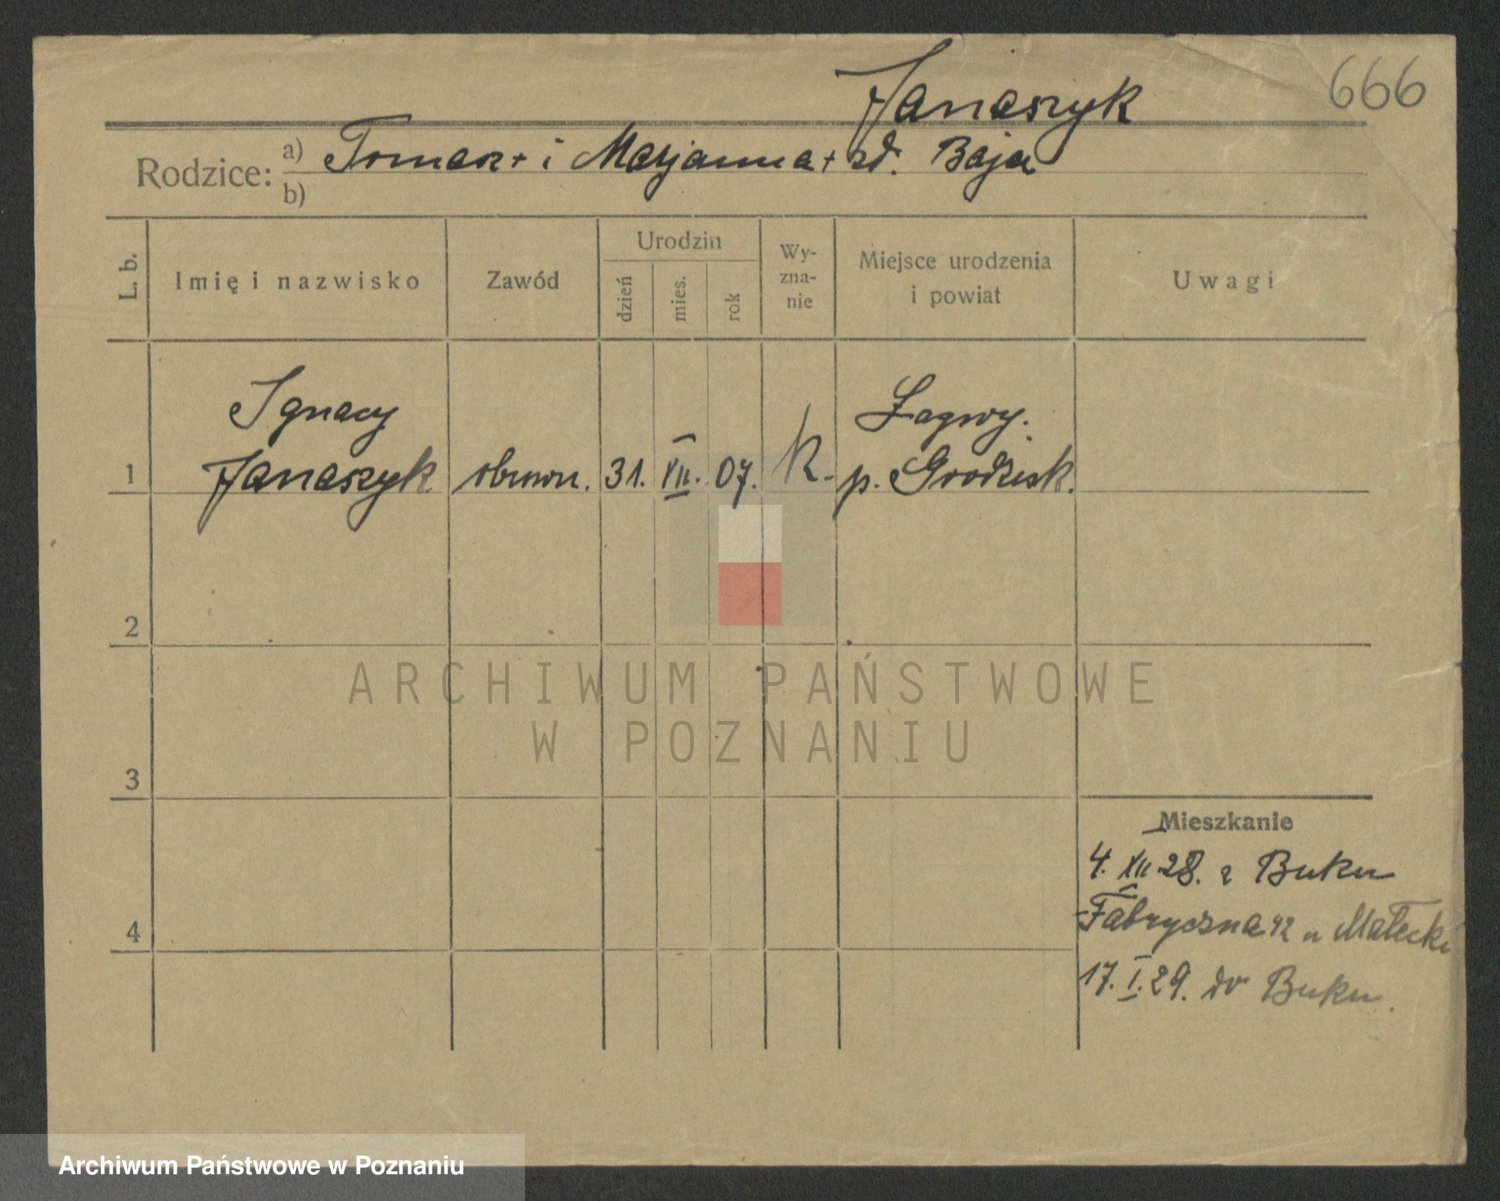 666
Janaszyk
Rodzice: a) Tomasz + i Marjanna + zd. Baja
b)
L. b.
Imię i nazwisko
Zawód
Urodzin
dzień
mies.
rok
Wy-
zna-
nie
Miejsce urodzenia
i powiat
Uwagi
Ignacy
Łagwy.
1 Janaszyk 31. XII. 07. K. p. Grodzisk.
2
ARCHIWUM PAŃSTWOWE
W POZNANIU
3
Mieszkanie
4. XII 28. z Buku
4 Fabryczna 42 u Małecki
17. I. 29. do Buku.
Archiwum Państwowe w Poznaniu